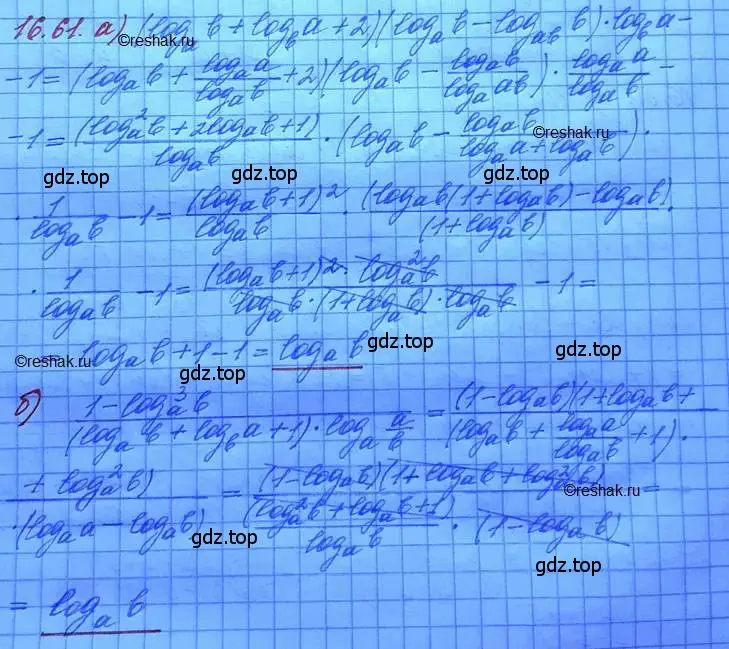 16.61. а) (log_a b + log_b a + 2)(log_a b - log_{ab} b) · log_b a -
©reshak.ru
- 1 = (log_a b + \frac{log_a a}{log_a b} + 2)(log_a b - \frac{log_a b}{log_a ab}) · \frac{log_a a}{log_a b} -
- 1 = \frac{(log_a^2 b + 2log_a b + 1)}{log_a b} · (log_a b - \frac{log_a b}{log_a a + log_a b}) ·
©reshak.ru
gdz.top gdz.top gdz.top
· \frac{1}{log_a b} - 1 = \frac{(log_a b + 1)^2}{log_a b} · \frac{(log_a b(1 + log_a b) - log_a b)}{(1 + log_a b)} ·
· \frac{1}{log_a b} - 1 = \frac{(log_a b + 1)^2 · log_a^2 b}{log_a b · (1 + log_a b) · log_a b} - 1 =
= log_a b + 1 - 1 = log_a b
©reshak.ru gdz.top gdz.top gdz.top
б) \frac{1 - log_a^3 b}{(log_a b + log_b a + 1) · log_a \frac{a}{b}} = \frac{(1 - log_a b)(1 + log_a b +}{(log_a b + \frac{log_a a}{log_a b} + 1) ·}
\frac{+ log_a^2 b)}{· (log_a a - log_a b)} = \frac{(1 - log_a b)(1 + log_a b + log_a^2 b)}{\frac{(log_a^2 b + log_a b + 1)}{log_a b} · (1 - log_a b)} =
©reshak.ru
gdz.top gdz.top
= log_a b